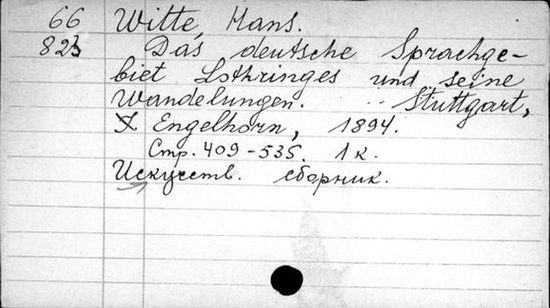 66 Witte, Hans.
823 Das deutsche Sprachge-
biet Lothringes und seine
Wandelungen. .. Stuttgart,
Engelhorn, 1894.
Стр. 409-535. 1 к.
Искусств. сборник.